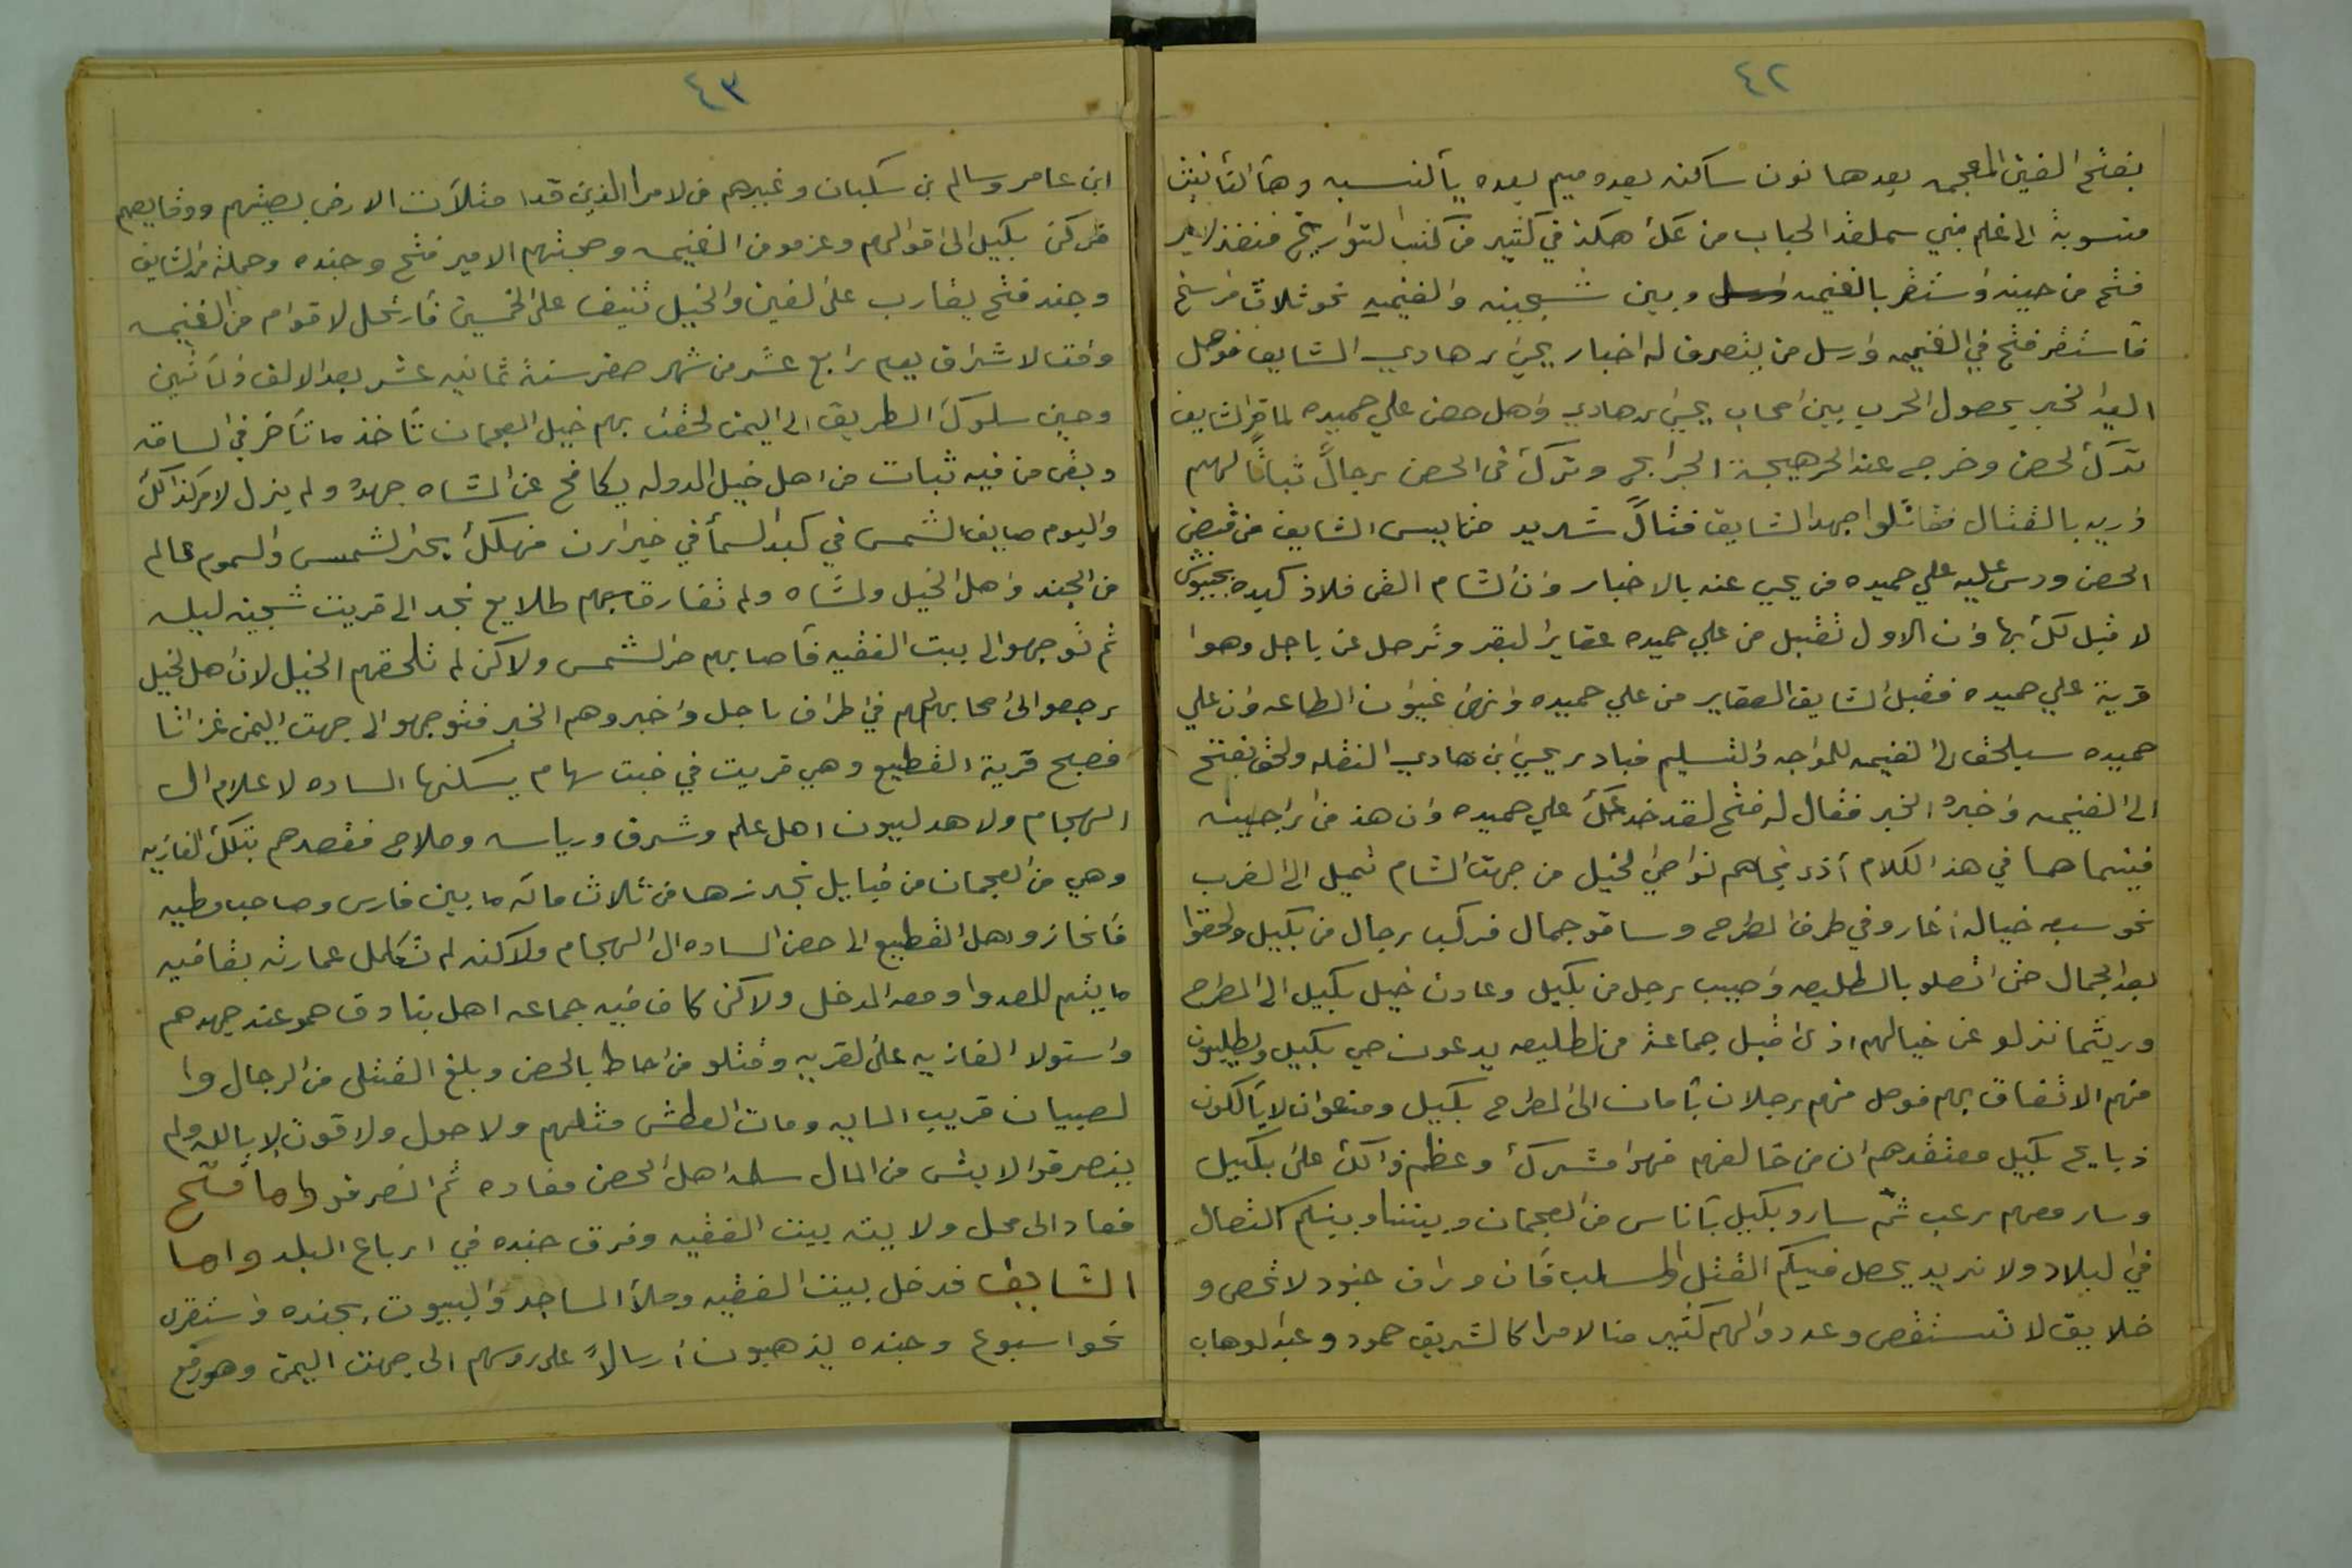 ٤٢
بفتح الغين المعجمه بعدها نون ساكنه بعده ميم بعده يا النسبه وها التأنيث
منسوبة الى غنم بني سملقة الحباب من عك هكذ في كثير من كتب التواريخ فنفذ الامير
فتح من حينه واستقر بالغنميه وبين شجينه والغنميه نحو ثلاث فراسخ
فاستقر فتح في الغنميه وارسل من يتصرف له اخبار يحيى بن هادي الشايف فوصل
اليه الخبر بحصول الحرب بين اصحاب يحيى بن هادي واهل حصن علي حميده لما قر الشايف
ترك الحصن وخرج عند الحرهيجة الجرابح وترك في الحصن رجالً ثباتا لهم
دريه بالقتال فقاتلوا جهد الشايف قتالً شديد حتا يبس الشايف من قبض
الحصن ودس عليه علي حميده من يحي عنه بالاخبار وان الشام القى فلاذ كبده بجيوش
لا قبل لك بها وان الاول تقبل من علي حميده عقاير البقر وترحل عن باجل وهوا
قرية علي حميده فقبل الشايف العقاير من علي حميده وانهى غيون الطاعه وان علي
حميده سيلحق الى الغنميه للمواجه والتسليم فبادر يحيى ابن هادي النقله ولحق بفتح
الى الغنميه واخبره الخبر فقال له فتح لقد خدعك علي حميده وان هذ من اراجيبه
فبينما هما في هذ الكلام أذ فجاهم نواصي الخيل من جهت الشام تميل الى الغرب
نحو سبعه خياله اغارو في طرف المطرح وساقو جمال فركب رجال من بكيل ولحقوا
بعد الجمال حتى اتصلو بالطليعه واصيب رجل من بكيل وعادت خيل بكيل الى المطرح
وريثما نزلو عن خيالهم اذ اقبل جماعة من الطليعه يدعون حي بكيل ويطلبون
منهم الاتفاق بهم فوصل منهم رجلان بأمان الى المطرح بكيل ومنعوا ان لا يأكلون
ذبايح بكيل معتقدهم ان من خالفهم فهوا مشرك وعظم ذالك على بكيل
وسار معهم رعب ثم سارو بكيل بأناس من العجمان وبيننا وبينكم اتصال
في البلاد ولا نريد يحصل فيكم القتل والسلب فأن وراى جنود لا تحصى و
خلايق لا تستقصى وعددوالهم كثير من الامرا كالشريف حمود وعبدالوهاب
٤٣
ابن عامر وسالم بن سكبان وغيرهم من لامرا الذين قدا متلأت الارض بصيتهم ووقايعهم
فركن بكيل الى اقوالهم وعزمو من الغنميه وصحبتهم الامير فتح وجنده وجملة من الشايف
وجند فتح يقارب على الفين والخيل تنيف على الخمسين فأرتحل لاقوام من الغنميه
وقت الاشراق يوم رابع عشر من شهر صفر سنة ثمانيه عشر بعد الالف والمأتين
وحين سلوك الطريق الى اليمن لحقت بهم خيل العجمان تأخذ ما تأخر في الساقه
وبقى من فيه ثبات من اهل خيل الدوله يكافح عن المشاه جهده ولم يزل لامر كذالك
واليوم صايف الشمس في كبد السمأ في خيراون فهلك بحر الشمس والسموم عالم
من الجند واهل الخيل والمشاه ولم تفارقهم طلايع نجد الى قريت شجينه ليله
ثم توجهوا لى بيت الفقيه فأصابهم حر الشمس ولاكن لم تلحقهم الخيل لان اهل الخيل
رجعو الى اصحابهم في اطراف باجل واخبروهم الخبر فتوجهو الى جهت اليمن غزاتا
فصبح قرية القطيع وهي قريت في خبت سهام يسكنها الساده لاعلام ال
البهجام ولاهدليون اهل علم وشرف ورياسه وصلاح فقصدهم بتلك الغازيه
وهي من العجمان من قبايل نجد زها من ثلاث مائه ما بين فارس وصاحب مطيه
فأنحازو اهل القطيع الى حصن الساده ال البهجام ولاكنه لم تكمل عمارته بقافيه
ما يتهم للعدوا ومعه المدخل ولاكن كان فيه جماعه اهل بنادق حمو عند جهدهم
واستولا الغازيه على القريه وقتلو من احاط بالحصن وبلغ القتلى من الرجال وا
لصبيان قريب المايه ومات العطش مثلهم ولا حول ولا قوت الا بالله ولم
ينصرفوا الا بشى من المال سلمه اهل الحصن مفاده ثم انصرفو واما فتح
فعاد الى محل ولايته بيت الفقيه وفرق جنده في ارباع البلد واما
الشايف فدخل بيت الفقيه وملأ المساجد والبيوت بجنده واستقرى
نحو اسبوع وجنده يذهبون أرسالاً على روسهم الى جهت اليمن وهو رفع